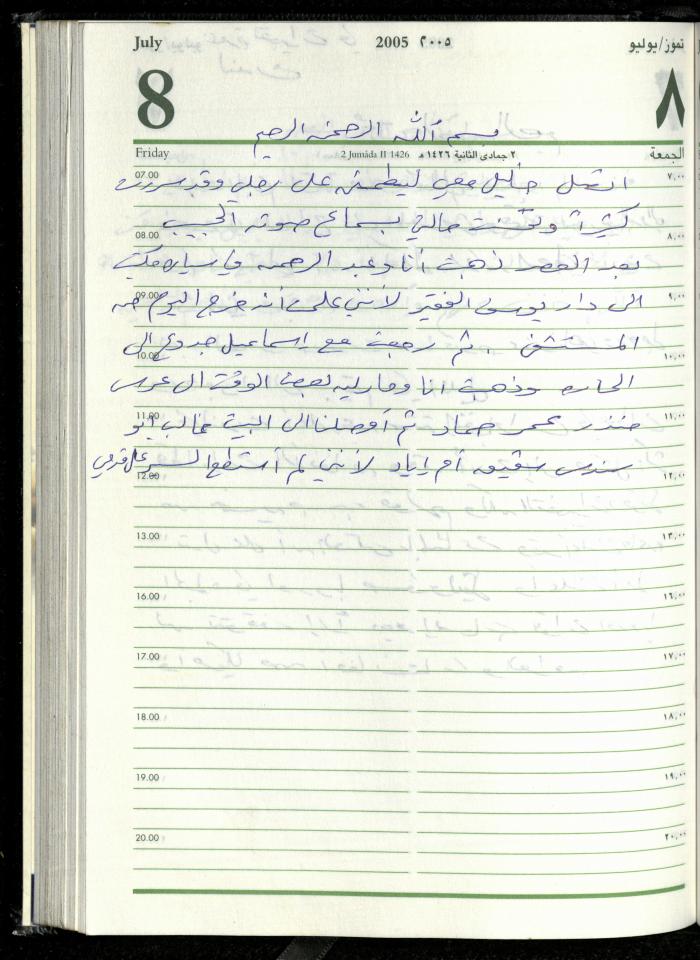 July 2005 ٢٠٠٥ تموز/يوليو
8 ٨
بسم الله الرحمن الرحيم
Friday 2 Jumâda II 1426 ٢ جمادى الثانية ١٤٢٦ هـ الجمعة
07.00 ٧,٠٠
اتصل خليل معي ليطمئن على رجلي وقد سررت
كثيراً وتحسنت حالتي بسماع صوته الحبيب
08.00 ٨,٠٠
بعد العصر ذهبت أنا وعبد الرحمن في سيارة
09.00 ٩,٠٠
الى دار يوسف الفقير لأنني علمت أنه خرج اليوم من
المستشفى . ثم رجعت مع اسماعيل جدوع الى
10.00 ١٠,٠٠
الحارة وذهبت انا لبعض الوقت ال عرس
11.00 ١١,٠٠
منذر عمر حماد ثم أوصلنا الى البيت غالب أبو
سندس شقيق أم إياد لأنني لم أستطع السير على قدمي
12.00 ١٢,٠٠
13.00 ١٣,٠٠
16.00 ١٦,٠٠
17.00 ١٧,٠٠
18.00 ١٨,٠٠
19.00 ١٩,٠٠
20.00 ٢٠,٠٠